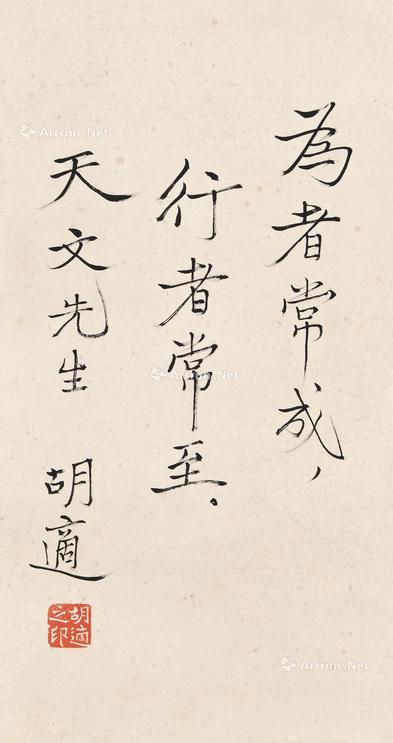 為者常成，
行者常至．
天文先生
胡適
胡適之印
Artron.Net
Artron.Net
Artron.Net